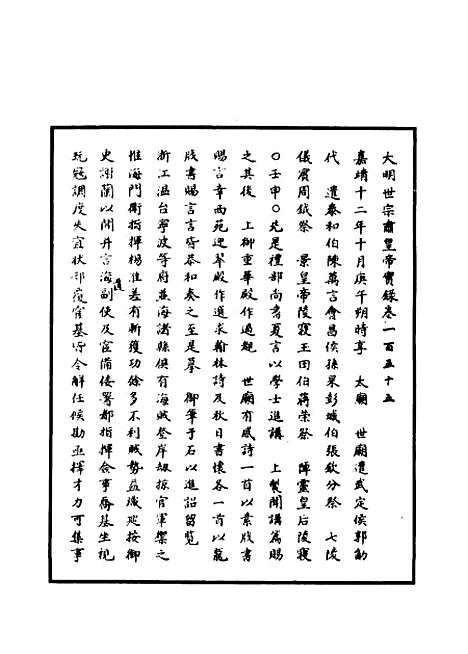 大明世宗肅皇帝實錄卷一百五十五
嘉靖十二年十月庚午朔時享　太廟　世廟遣武定侯郭勛
代　遣泰和伯陳萬言會昌侯孫杲彭城伯張欽分祭　七陵
儀賓周鉞祭　景皇帝陵寢玉田伯蔣榮祭　陣靈皇后陵寢
○壬申○先是禮部尚書夏言以學士進講　上製聞講篇賜
之其後　上御重華殿作過觀　世廟有感詩一首以素牋書
賜言幸西苑迎翠殿作選求翰林詩及秋日書懷各一首以龍
牋書賜言言齊恭和奏之至是摹　御筆于石以進詔留覽
浙江溫台寧波等府並海諸縣俱有海賊登岸劫掠官軍禦之
惟海門衛指揮楊淮差有斬獲功餘多不利賊勢益熾巡按御
史謝蘭以聞并言海道副使及宦備倭署都指揮僉事齊基坐視
玩寇調度失宜狀部覆宦基皆令解任候勘並擇才力可集事